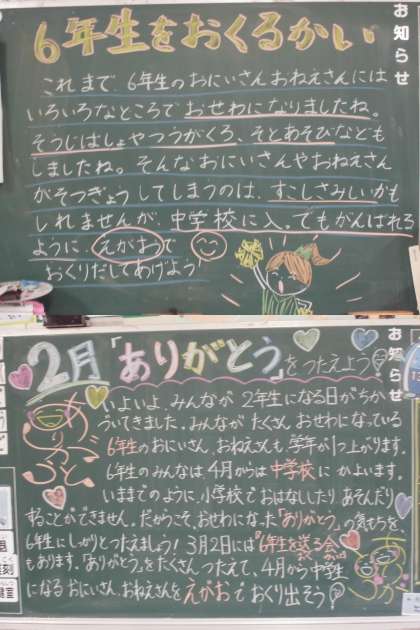 お知らせ
6年生をおくるかい
これまで、6年生のおにいさんおねえさんには
いろいろなところでおせわになりましたね。
そうじばしょやつうがくろ、そとあそびなども
しましたね。そんなおにいさんやおねえさん
がそつぎょうしてしまうのは、すこしさみしいかも
しれませんが、中学校に入ってもがんばれる
ように、えがおで
おくりだしてあげよう
お知らせ
2月「ありがとう」をつたえよう
ありがとう
いよいよ、みんなが2年生になる日がちか
づいてきました。みんながたくさんおせわになっている
6年生のおにいさん、おねえさんも、学年が1つ上がります。
6年生のみんなは、4月からは中学校にかよいます。
いままでのように、小学校でおはなししたりあそんだり
することができません。だからこそ、おせわになった「ありがとう」の気もちを、
6年生にしっかりとつたえましょう!3月2日には"6年生を送る会"
もあります。「ありがとう」をたくさんつたえて、4月から中学生
になるおにいさん、おねえさんをえがおでおくり出そう!